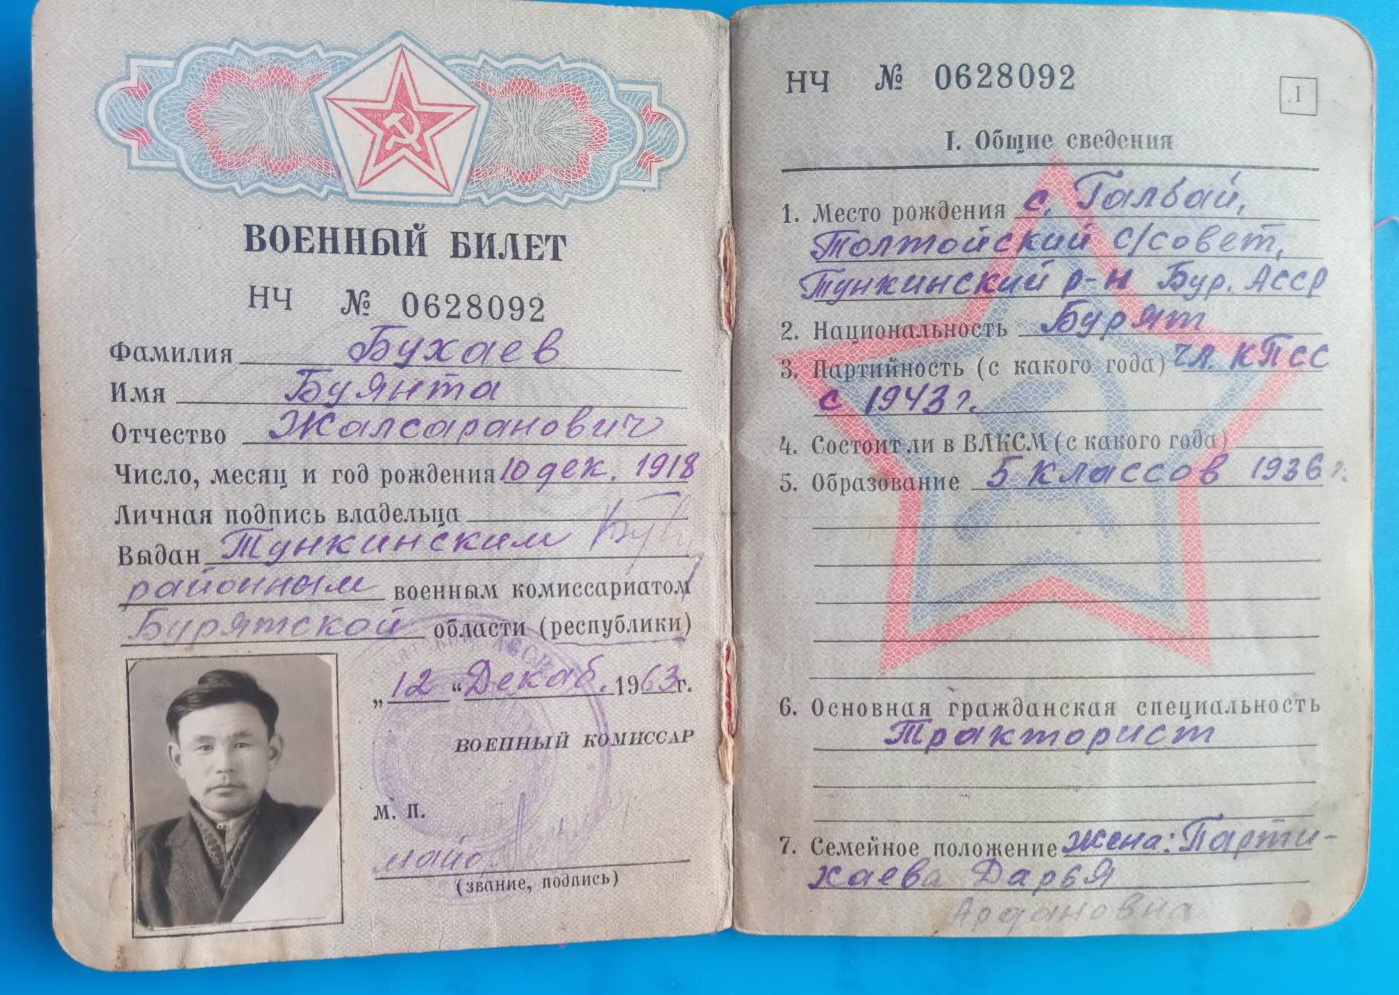 ВОЕННЫЙ БИЛЕТ
НЧ № 0628092
Фамилия Бухаев
Имя Буянта
Отчество Жалсаранович
Число, месяц и год рождения 10 дек. 1918
Личная подпись владельца
Выдан Тункинским
районным военным комиссариатом
Бурятской области (республики)
„12“ Декаб. 1963г.
ВОЕННЫЙ КОМИССАР
М. П.
(звание, подпись)
НЧ № 0628092
1
I. Общие сведения
1. Место рождения с. Галбай,
Толтойский с/совет,
Тункинский р-н Бур. АССР
2. Национальность Бурят
3. Партийность (с какого года) чл. КПСС
с 1943 г.
4. Состоит ли в ВЛКСМ (с какого года)
5. Образование 5 классов 1936 г.
6. Основная гражданская специальность
Тракторист
7. Семейное положение жена: Парти-
хаева Дарья
Ардановна